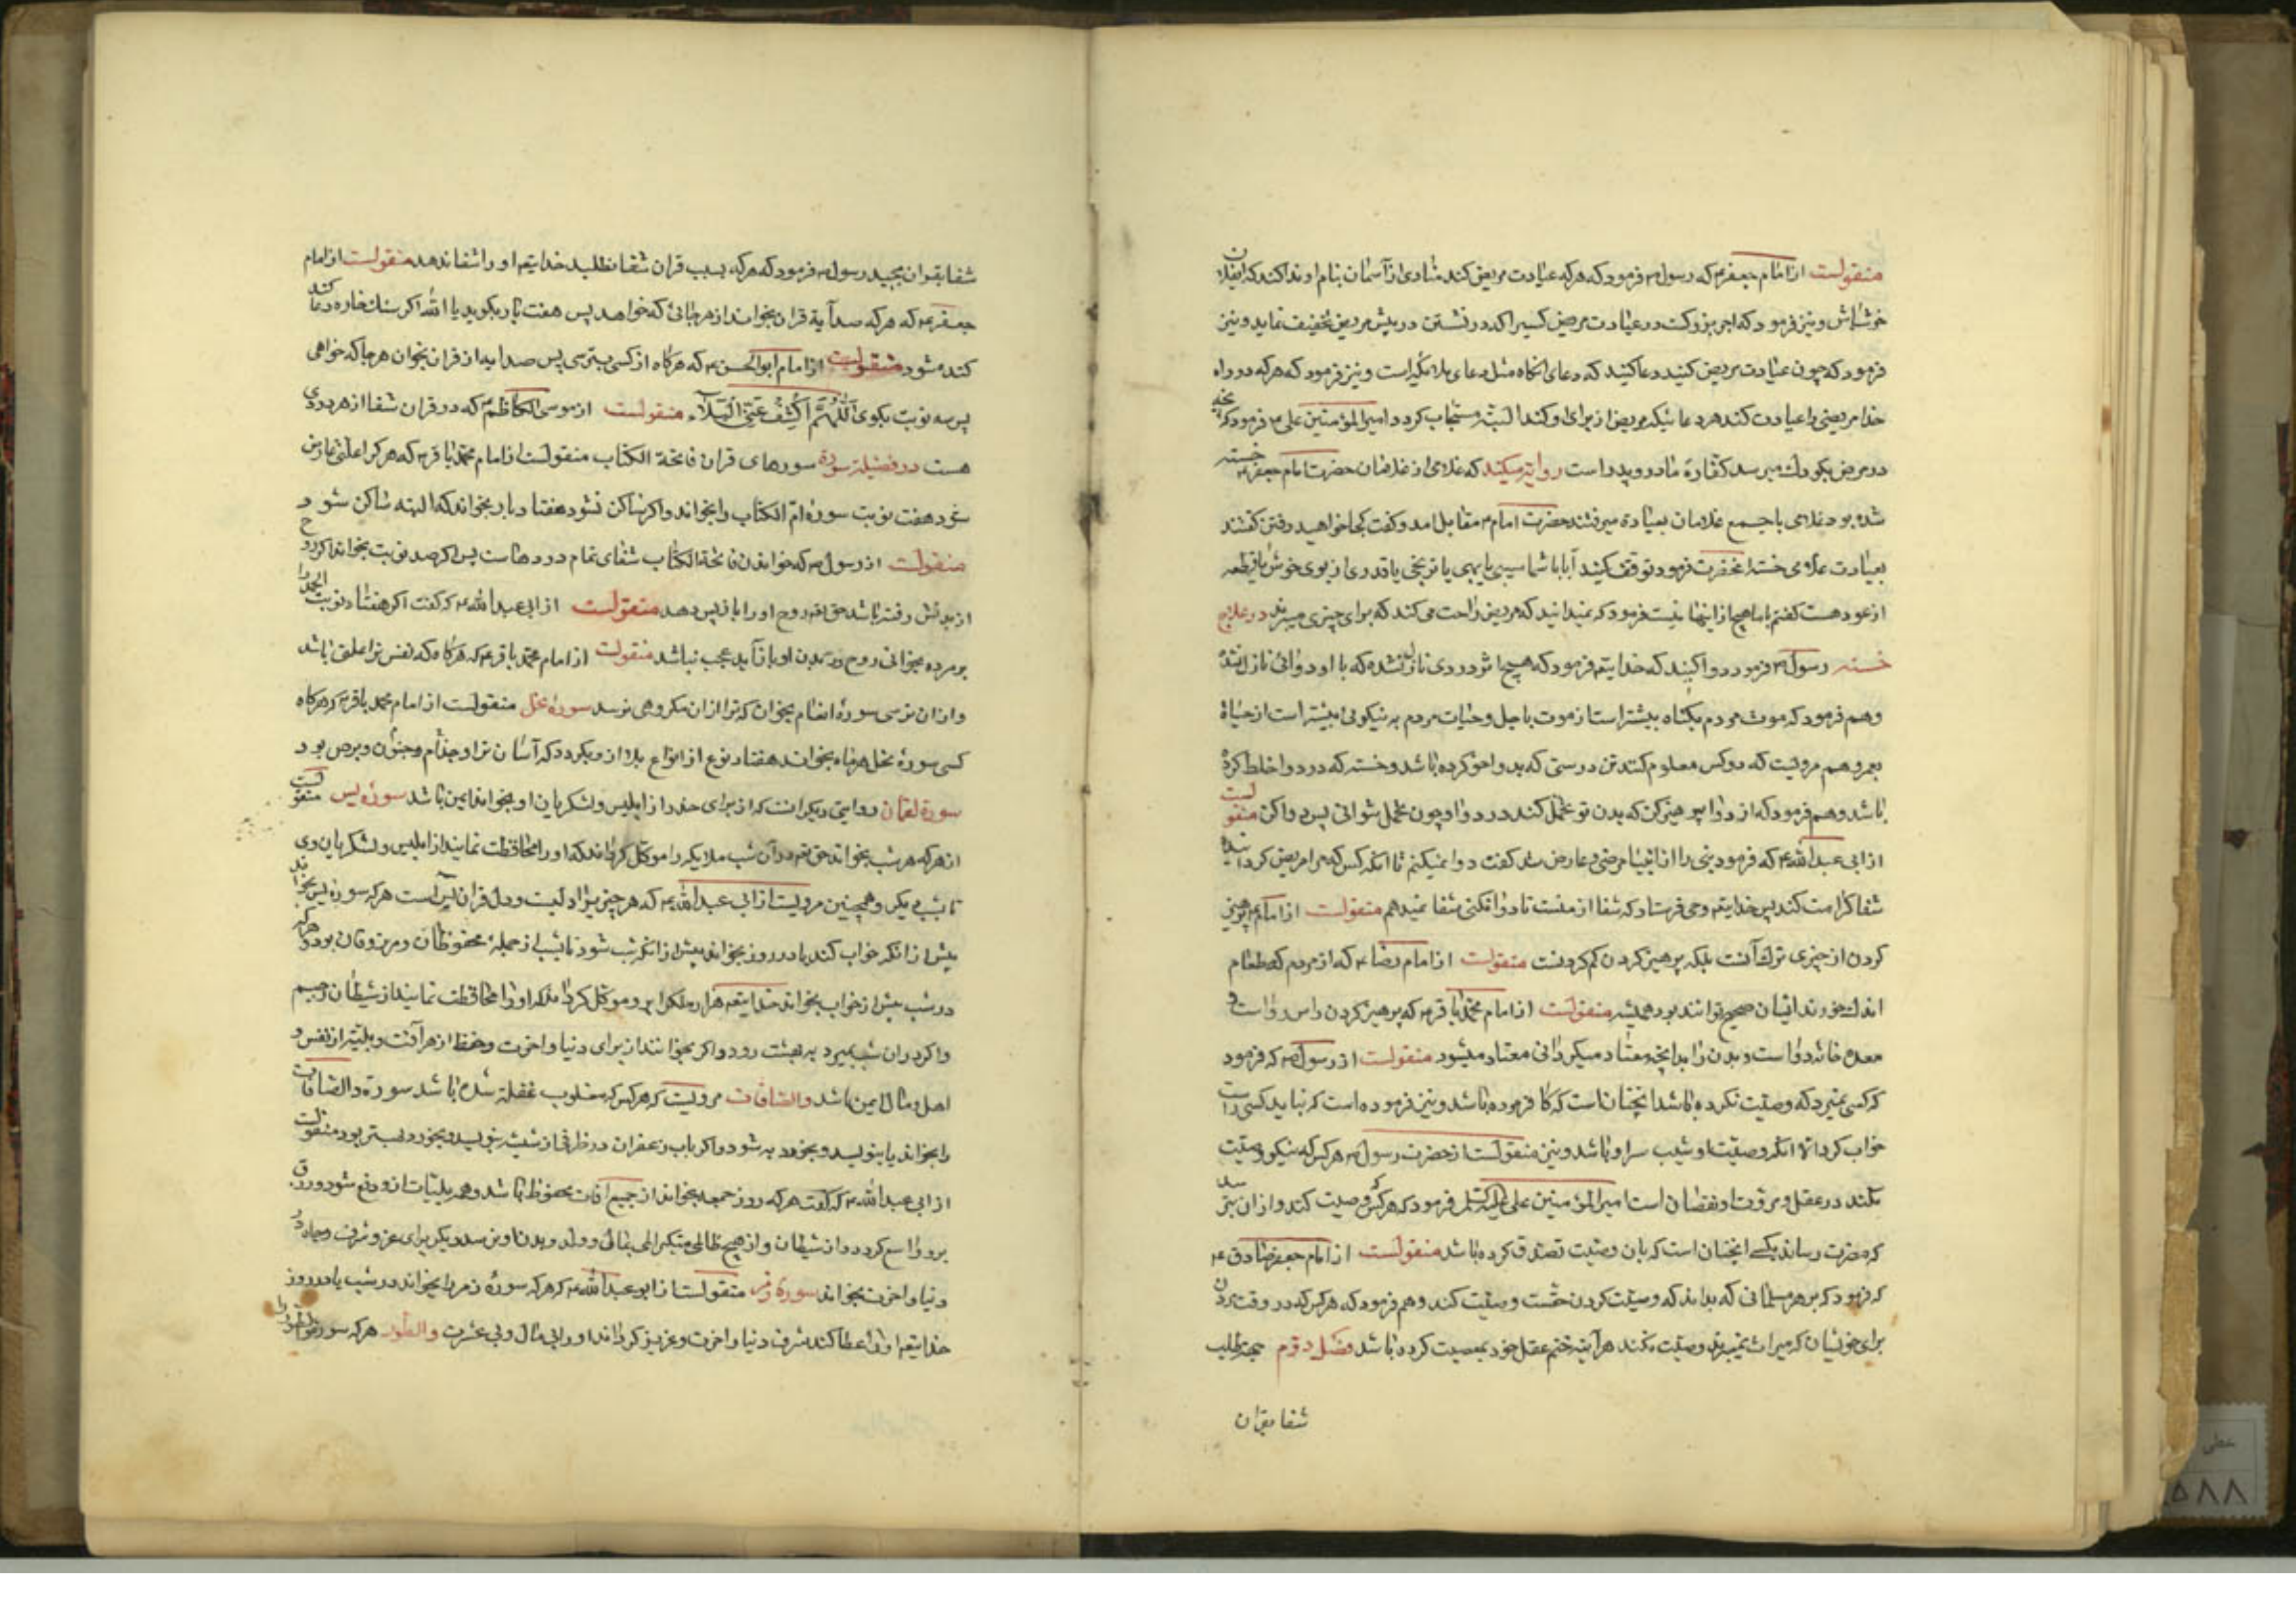 منقولست از امام جعفر ع که رسول ص فرمود که هرکه عیادت مریض کند منادی از آسمان بنام او ندا کند که ایفلان
خوش باش و نیز فرمود که اجر بزرکت در عیادت مریض کسیرا که در نشستن در پیش مریض تخفیف نماید و نیز
فرمود که چون عیادت مریض کنید دعا کنید که دعای انکاه مثل دعای ملائکه است و نیز فرمود که هرکه در راه
خدا مریضی را عیادت کند هر دعا ئیکه مریض از برای او کند البته مستجاب کردد امیر المؤمنین علی ع فرمود که انچه
در مرض بکودک میرسد کفارهٔ مادر و پدر است روایة میکند که غلامی از غلامان حضرت امام جعفر ع خسته
شده بود غلامی با جمع غلامان بعیادة میرفتند حضرت امام ع مقابل امد و کفت کجا خواهید رفتن کفتند
بعیادت غلامی خسته انحضرت فرمود توقف کنید آیا با شما سیبی یا بهی یا ترنجی یا قدری از بوی خوش یا قطعه
از عود هست کفتم با ما هیچ از اینها نیست فرمود که نمیدانید که مریض راحت می کند که برای چیزی میبرند در علاج
خسته رسول ص فرمود دوا کنید که خدایتعه فرمود که هیچ دردی نازل نشده که با او دوائی نازل نشد
و هم فرمود که موت مردم بکناه بیشتر است از موت باجل و حیات مردم به نیکوئی بیشتر است از حیاة
بعمر و هم مرویست که دو کس معلوم کنند تن درستی که بدوا خو کرده باشد و خسته که درد و اخلط کرده
باشد و هم فرمود که از دوا پرهیز کن که بدن تو تحمل کند درد را و چون تحمل نتوانی پس دوا کن منقولست
از ابی عبد الله ع که فرمود نبی را از انبیا مرضی عارض شد کفت دوا نمیکنم تا انکه کس که مرا مریض کردانید
شفا کرامت کند پس خدایتعه وحی فرستاد که شفا از منست تا دوا نکنی شفا نمیدهم منقولست از امام ع پرهیز
کردن از چیزی ترک آنست بلکه پرهیز کردن کم کردنست منقولست از امام رضا ع که از مردم که طعام
اندک خورند ابدان ایشان صحیح توانند بود همیشه منقولست از امام محمد باقر ع که پرهیز کردن راس دواست و
معده خانه دوا است و بدن را بدانچه معتاد میکردانی معتاد میشود منقولست از رسول ص که فرمود
که کسی بمیرد که وصیت نکرده باشد انچنان است که کافر مرده باشد و نیز فرموده است که نباید کسی راست
خواب کردن الا انکه وصیت او شب سر او باشد و نیز منقولست از حضرت رسول ص هرکس که نیکو وصیت
نکند در عقل و مروت او نقصان است امیر المؤمنین علی علیه السلم فرمود که هرکس وصیت کند و از ان نترسد
که مضرت رساند بکسی انچنان است که بان وصیت تصدق کرده باشد منقولست از امام جعفر صادق ع
که فرمود که بر هر مسلمانی که بداند که وصیت کردن حقست وصیت کند و هم فرمود که هرکس که در وقت مردن
برای خویشان که میراث نمیبرند وصیت نکند هر آینه ختم عقل خود بمعصیت کرده باشد فصل دوم جهة طلب
شفا بقران
شفا بقران مجید رسول ص فرمود که هرکه بسبب قران شفا نطلبد خدایتعه او را شفا ندهد منقولست از امام
جعفر ع که هرکه صد آیة قران بخواند از هر جائی که خواهد پس هفت بار بکوید یا الله اکر بر سنک خاره دعا کند
کنده شود منقولست از امام ابو الحسن ع که هرکاه از کسی بترسی پس صد ایه از قران بخوان هر جا که خواهی
پس سه نوبت بکوی اللهم اکشف عنی البلاء منقولست از موسی الکاظم ع که در قران شفا از هر دردی
هست در فضیلة سورة سورهای قران فاتحة الکتاب منقولست از امام محمد باقر ع که هر کرا علتی عارض
شود هفت نوبت سورهٔ ام الکتاب را بخواند و اکر ساکن نشود هفتاد بار بخواند که البته ساکن شود
منقولست از رسول ص که خواندن فاتحة الکتاب شفای تمام دردهاست پس اکر صد نوبت بخواند اکر روح
از بدنش رفته باشد حق تعه روح او را باز پس دهد منقولست از ابی عبد الله ع که کفت اکر هفتاد نوبت الحمد را
بر مرده بخوانی روح در بدن او باز آید عجب نباشد منقولت از امام محمد باقر ع که هرکاه که نفس ترا علتی باشد
و از ان ترسی سورهٔ انعام بخوان که ترا از ان مکروهی نرسد سورهٔ نحل منقولست از امام محمد باقر ع که هرکاه
کسی سورهٔ نحل هر ماه بخواند هفتاد نوع از انواع بلا از و بکردد که آسان تر او جذام و جنون و برص بود
سورة لقمان روایتی دیکر انست که از برای حذر از ابلیس و لشکریان او بخواند ایمن باشد سورهٔ یس منقولست
از هرکه هر شب بخواند حق تعه در آن شب ملایکه را موکل کرداند که او را محافظت نمایند از ابلیس و لشکریان وی
تا شب دیکر و همچنین مرویست از ابی عبد الله ع که هر چیزی را دلیست و دل قران یس است هرکه سورهٔ یس بخواند
پیش از انکه خواب کند یا در روز بخواند پیش از انکه شب شود تا شب از جمله محفوظان و مرزوقان بود و هرکه
در شب پیش از خواب بخواند خدایتعه هزار ملک را بر و موکل کرداند که او را محافظت نمایند از شیطان رجیم
و اکر در ان شب بمیرد به بهشت رود و اکر بخوانند از برای دنیا و اخرت و حفظ از هر آفت و بلیة از نفس و
اهل و مال ایمن باشد والصافات مرویست که هرکس که مغلوب غفلة شده باشد سورة والصافات
را بخواند یا بنویسد و بخورد به شود و اکر باب زعفران در ظرفی از شیشه بنویسد و بخورد بهتر بود منقولست
از ابی عبد الله ع که کفت هرکه روز جمعه بخواند از جمیع افات محفوظ باشد و همه بلیات از و دفع شود و رزق
بر و واسع کردد و از شیطان و از هیچ ظالمی متکبر المی بمالی و ولد و بدن او نرسد و دیکر برای عز و شرف و جاه در
دنیا و اخرت بخواند سورهٔ زمر منقولست از ابو عبد الله ع که هرکه سورهٔ زمر را بخواند در شب یا در روز
خدایتعه او را عطا کند شرف دنیا و اخرت و عزیز کرداند او را بی مال و بی عشرت والطور هرکه سوره طور را
عطی
۵۸۸